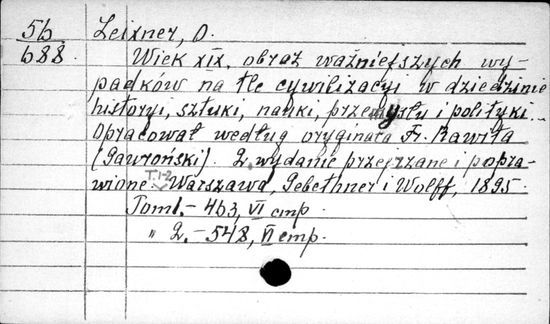 56
688
Leixner, O.
Wiek XIX, obraz ważniejszych wy-
padków na tle cywilizacyi w dziedzinie
historyi, sztuki, nauki, przemysłu i polityki..
Opracował według oryginała Fr. Rawita
(Gawroński). 2 wydanie przejrzane i popra-
wione. T.1-2 Warszawa, Gebethner i Wolff, 1895.
Tom1.- 463, VI стр.
" 2.- 548, VI стр.